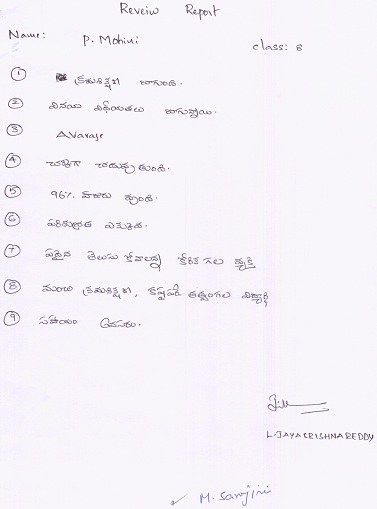 Reveiw Report
Name: P. Mohini
class: 8
① క్రమశిక్షణ బాగుంది.
② వినయ విధేయతలు బాగున్నాయి.
③ AVaraje
④ చక్కగా చదువుతుంది.
⑤ 96% హాజరు వుంది.
⑥ పరిశుభ్రత ఎక్కువ.
⑦ ఏదైన తెలుసుకోవాలన్న కోరిక గల వ్యక్తి
⑧ మంచి క్రమశిక్షణ, కష్టపడే తత్వంగల విద్యార్థి
⑨ సహాయం చేస్తుంది.
L. JAYACRISHNA REDDY
M. Sarojini